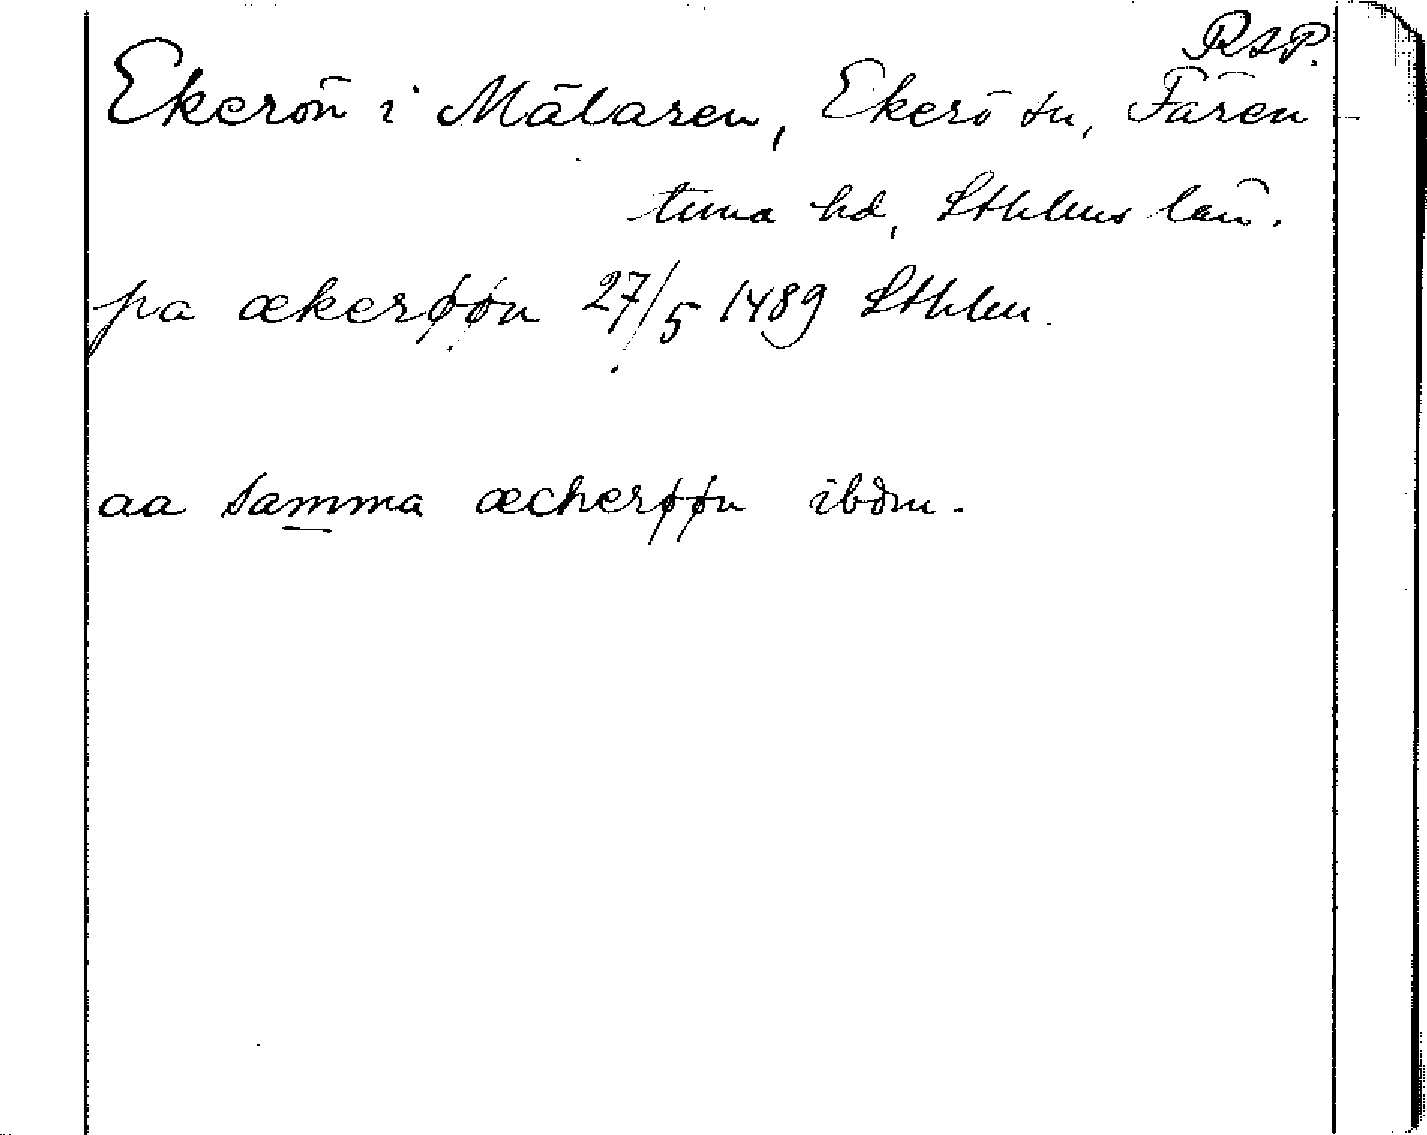 RAP.
Ekerön i Mälaren, Ekerö sn, Fären-
tuna hd, Sthlms län.
pa ækerøøn 27/5 1489 Sthlm.
aa samma æcherøøn ibdm.